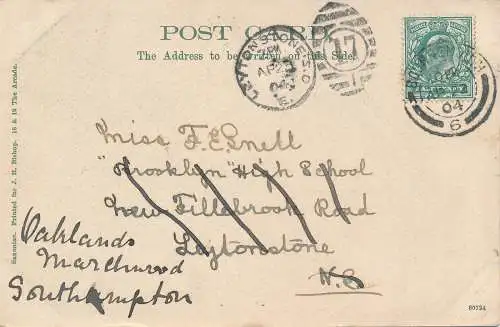 POST CARD.
The Address to be written on this Side.
LEYTONSTONE S.O.
AP
04
17
04
6
Miss F. E. Snell
"Brooklyn" High School
New Fillebrook Road
Leytonstone
N.E
Oaklands
Marchwood
Southampton
Printed for J. R. Bishop. 16 & 18 The Arcade.
80724